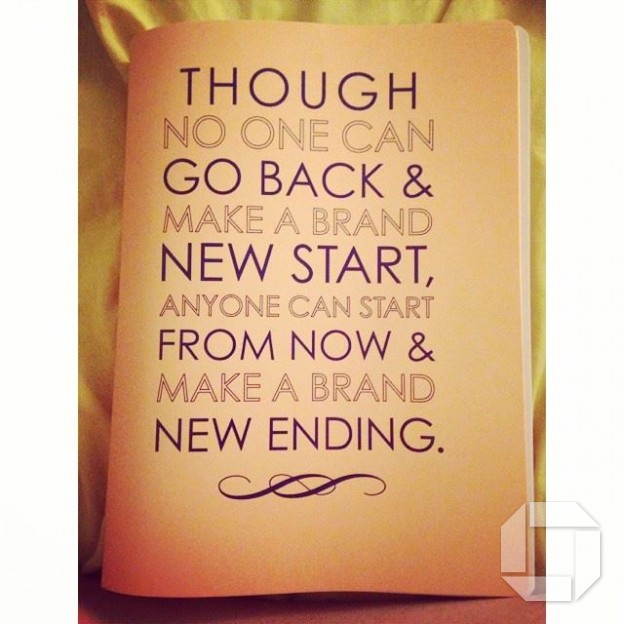 THOUGH
NO ONE CAN
GO BACK &
MAKE A BRAND
NEW START,
ANYONE CAN START
FROM NOW &
MAKE A BRAND
NEW ENDING.